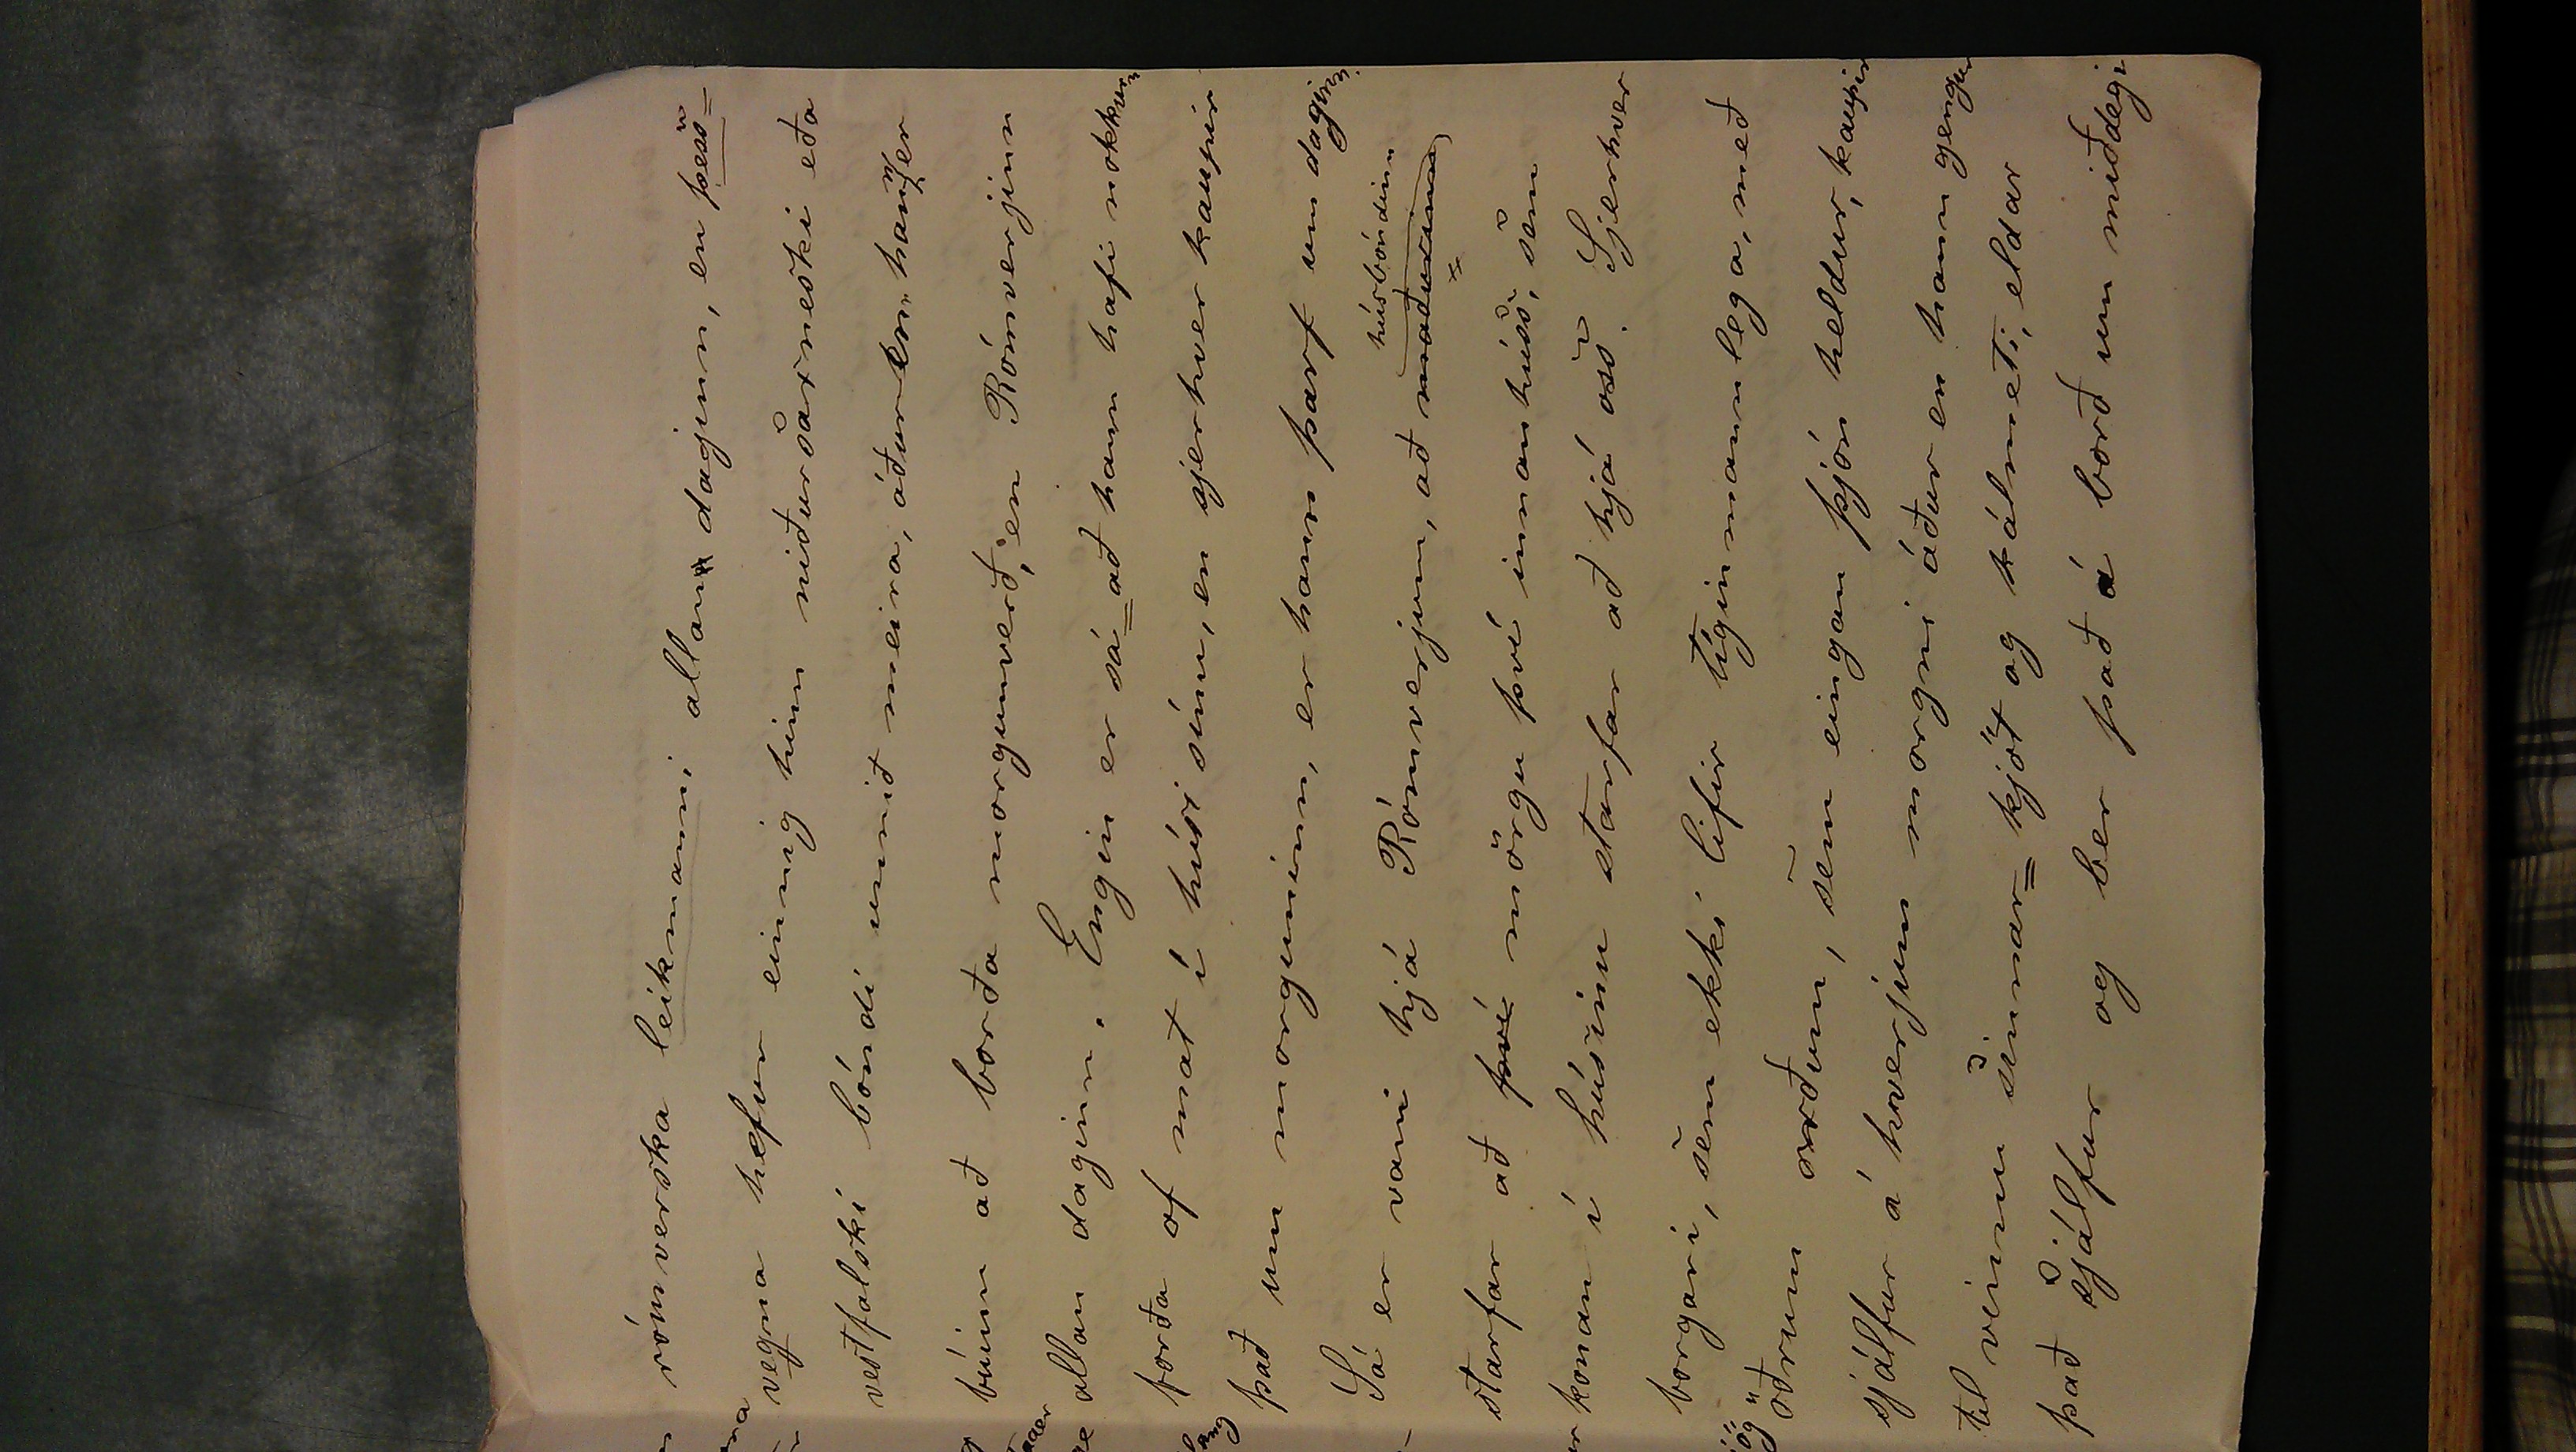 rómverska leikmanni allan daginn, en þess-
vegna hefur einnig hinn niðursaxneski eða
vestfalski bóndi unnið meira, áður en hann er
búinn að borða morgunverð, en Rómverjinn
allan daginn. Engin er sá að hann hafi nokkurn
forða of mat í húsi sínu, en sjerhver kaupir
það um morguninn, er hann þarf um daginn.
húsbóndinn
Sá er vani hjá Rómverjum, að maðurinn
starfar að því mörgu því innanhúss, sem
konan í húsinu starfar að hjá oss. Sjerhver
borgari, sem ekki lifir tiginmannlega, með
öðrum orðum, sem eingan þjón heldur, kaupir
sjálfur á hverjum morgni áður en hann gengur
til vinnu sinnar kjöt og kálmeti, eldar
það sjálfur og ber það á borð um miðdegi